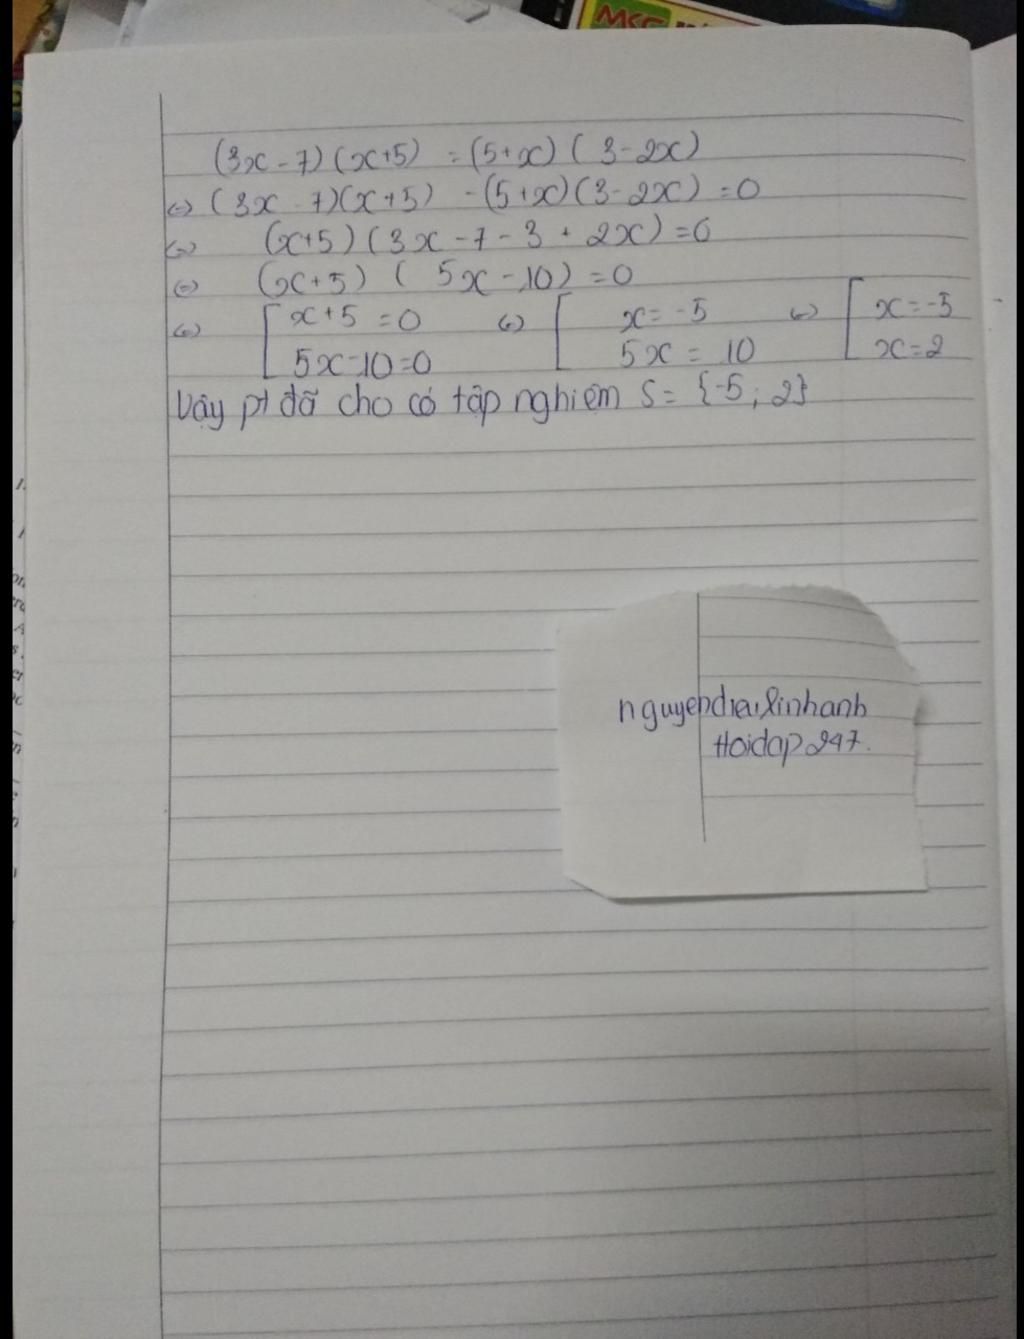 MCC
(3x-7)(x+5) = (5+x)(3-2x)
<=> (3x-7)(x+5) - (5+x)(3-2x) = 0
<=> (x+5)(3x-7-3+2x) = 0
<=> (x+5)(5x-10) = 0
<=> [ x+5=0 <=> [ x=-5 <=> [ x=-5
5x-10=0 5x=10 x=2
Vậy pt đã cho có tập nghiệm S = {-5; 2}
nguyendieulinhanh
Hoidap247.